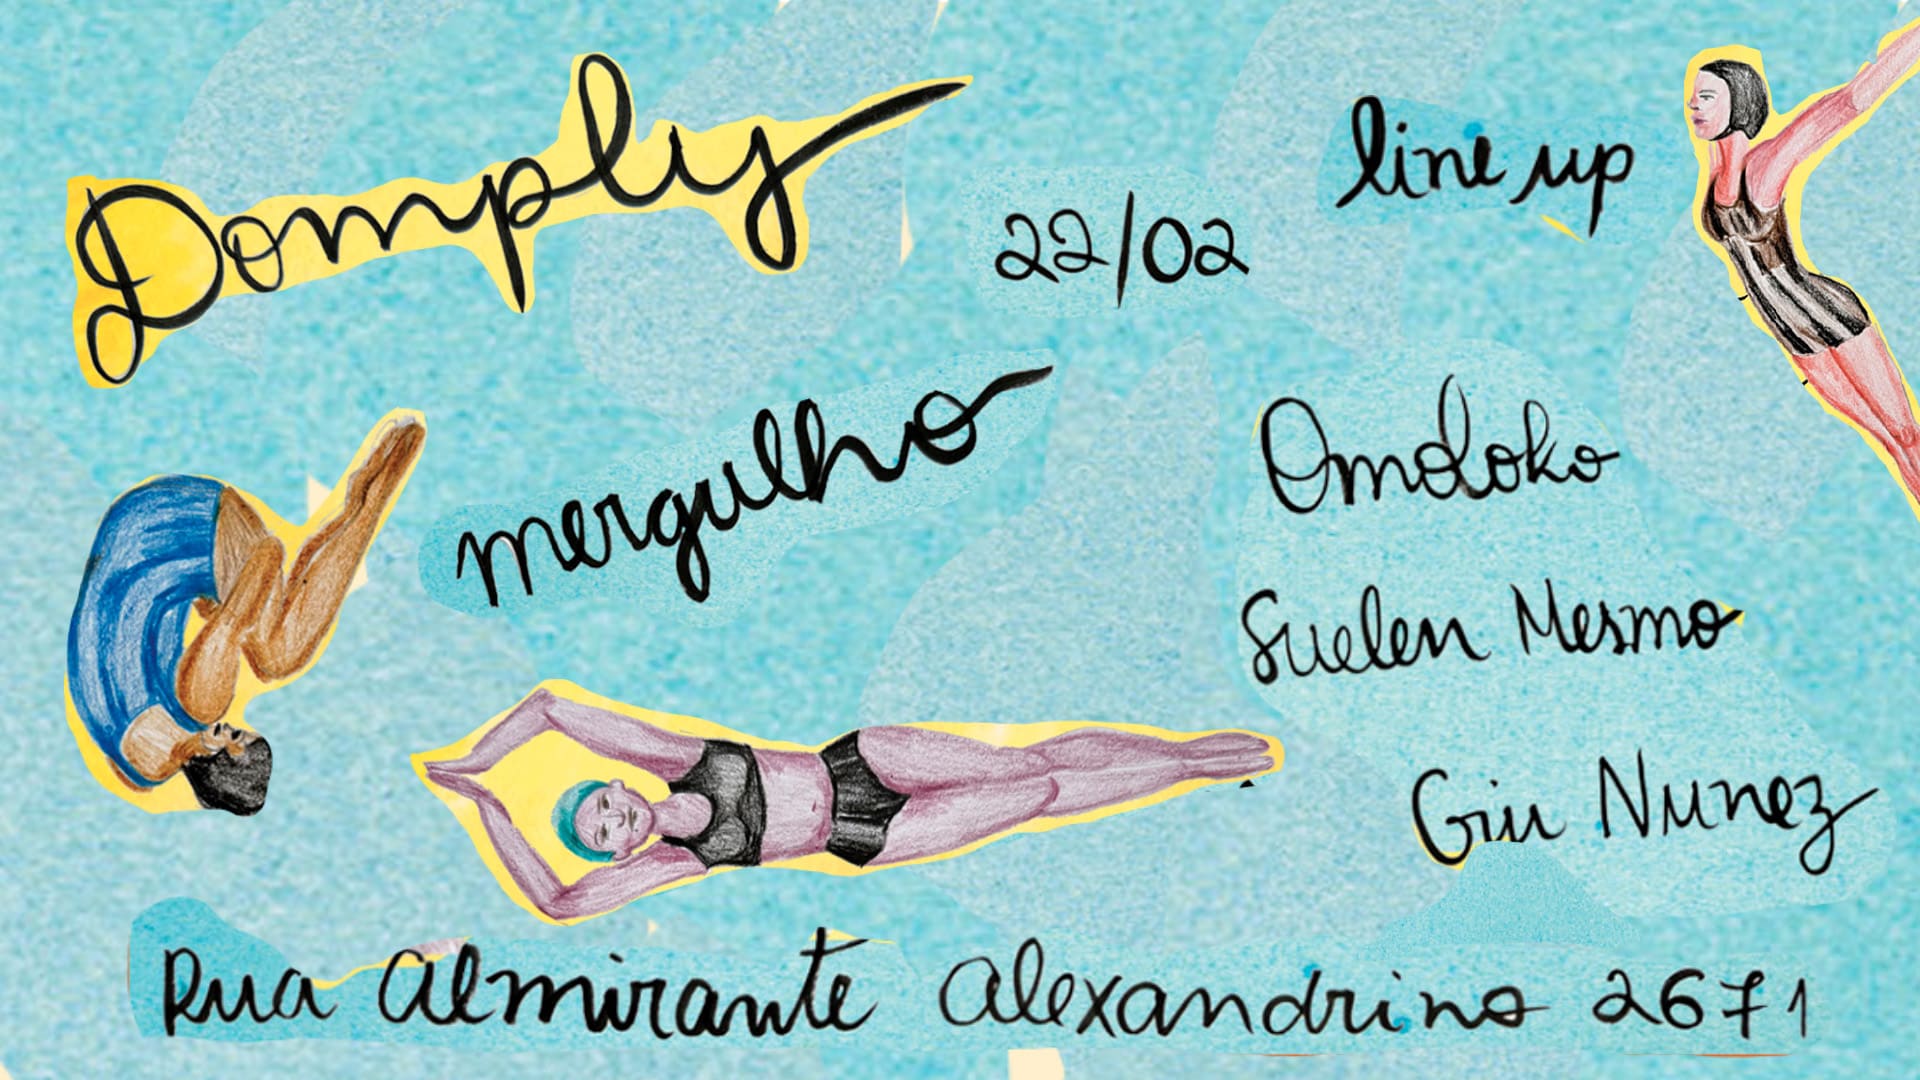 Domply
22/02
mergulho
line up
Omoloko
Suelen Mesmo
Giu Nunez
Rua Almirante Alexandrino 2671